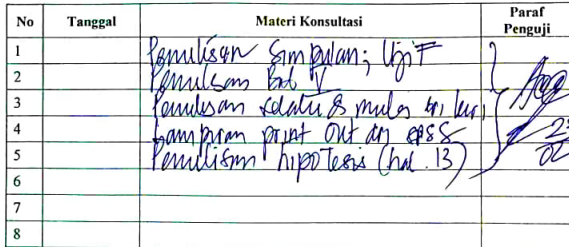 No Tanggal Materi Konsultasi Paraf Penguji
1 Penulisan Simpulan; Uji F
2 Penulisan Bab V
3 Penulisan selalu di mulai dr kiri
4 Lampiran print out dr SPSS
5 Penulisan hipotesis (hal. 13)
6
7
8